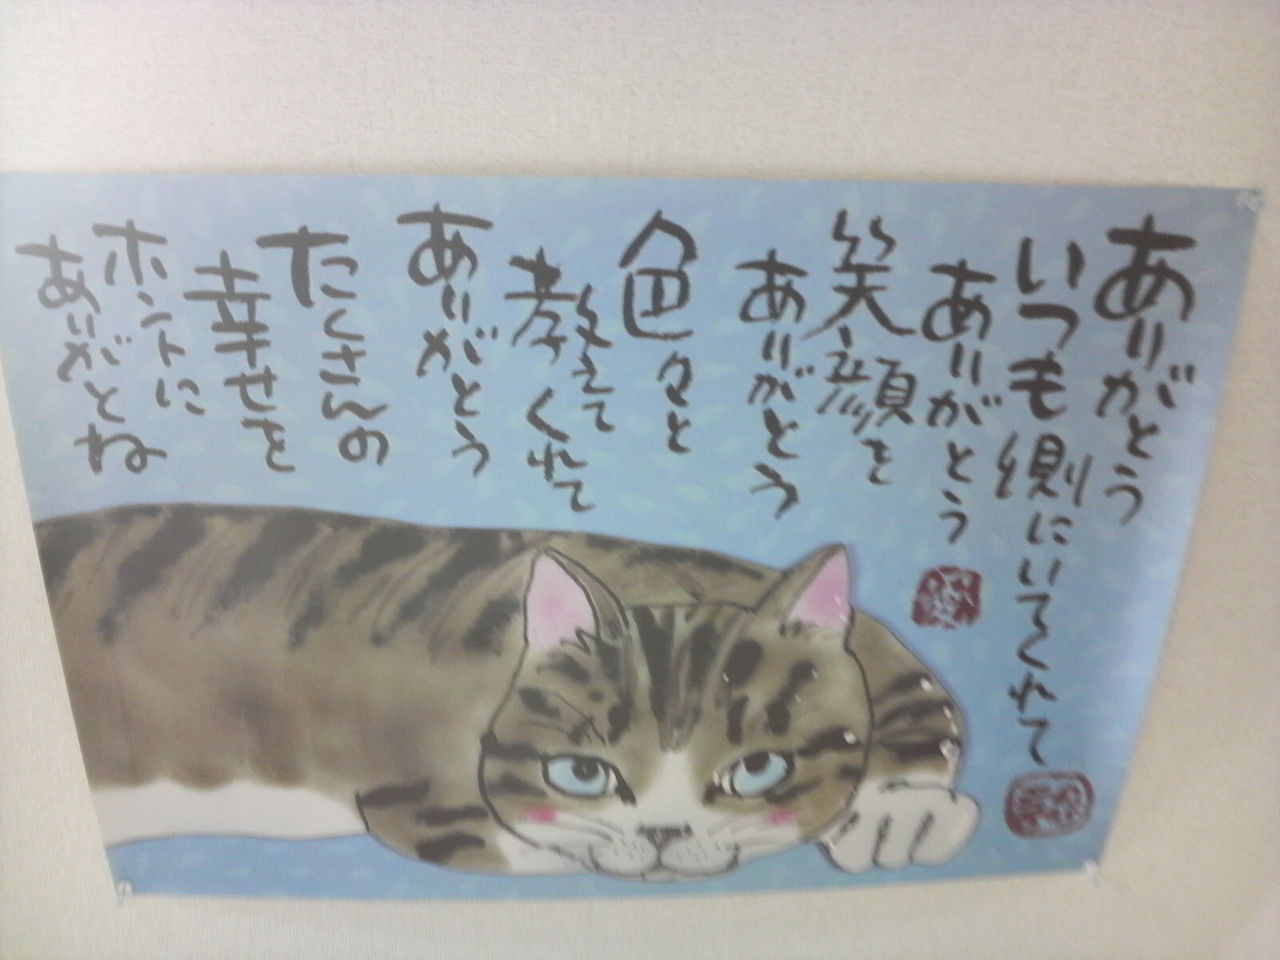 ありがとう
いつも側にいてくれて
ありがとう
笑顔を
ありがとう
色々と
教えてくれて
ありがとう
たくさんの
幸せを
ホントに
ありがとね